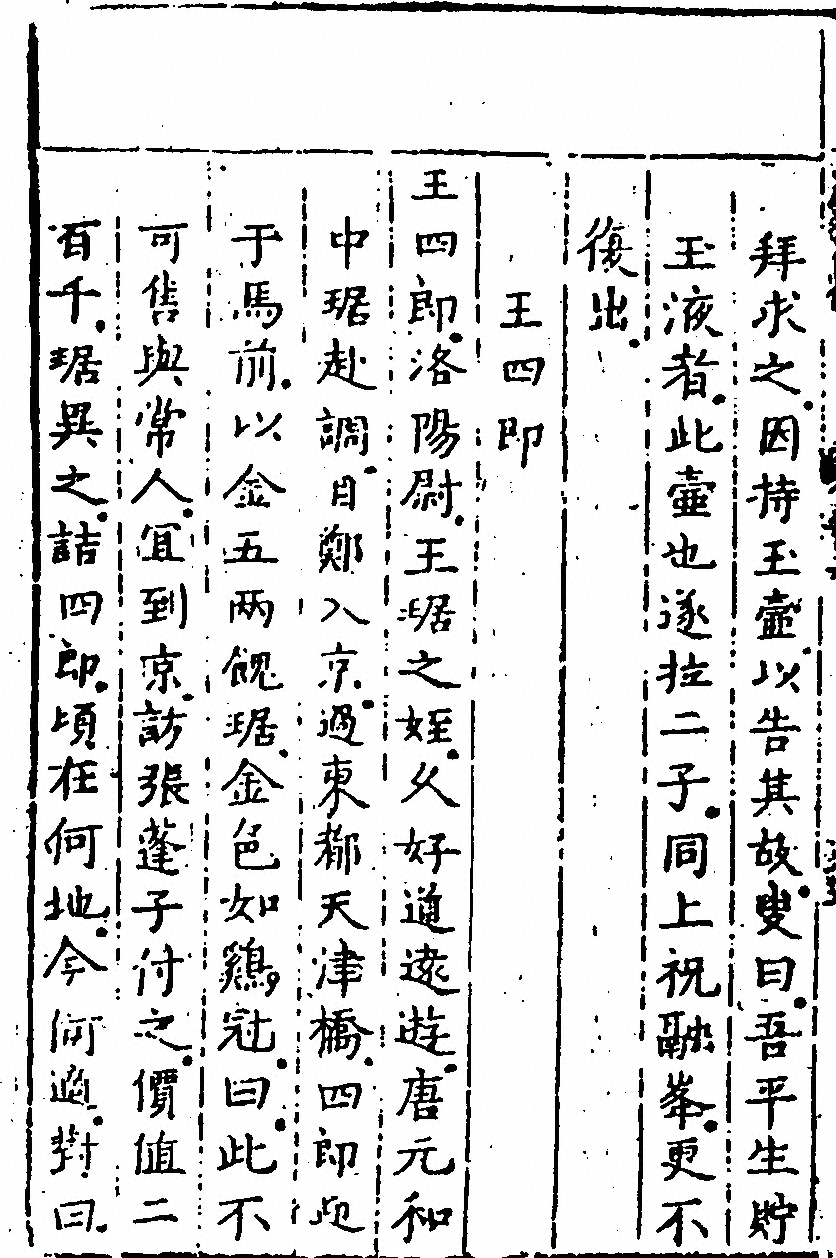 拜求之因持玉壺以告其故叟曰吾平生貯
玉液者此壺也遂拉二子同上祝融峯更不
復出
王四郎
王四郎洛陽尉王琚之姪久好道遠遊唐元和
中琚赴調自鄭入京過東都天津橋四郎迎
于馬前以金五兩餽琚金色如鷄冠曰此不
可售與常人宜到京訪張蓬子付之價值二
百千琚異之詰四郎頃在何地今何適對曰